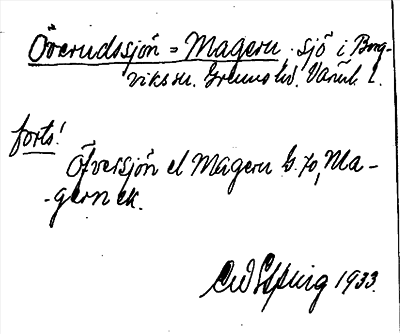 Överudssjön = Magern. sjö i Borg-
viks sn. Grums hd. Värml. l.
forts!
Öfversjön el Magern G. 70, Ma-
-gern ek.
1933.